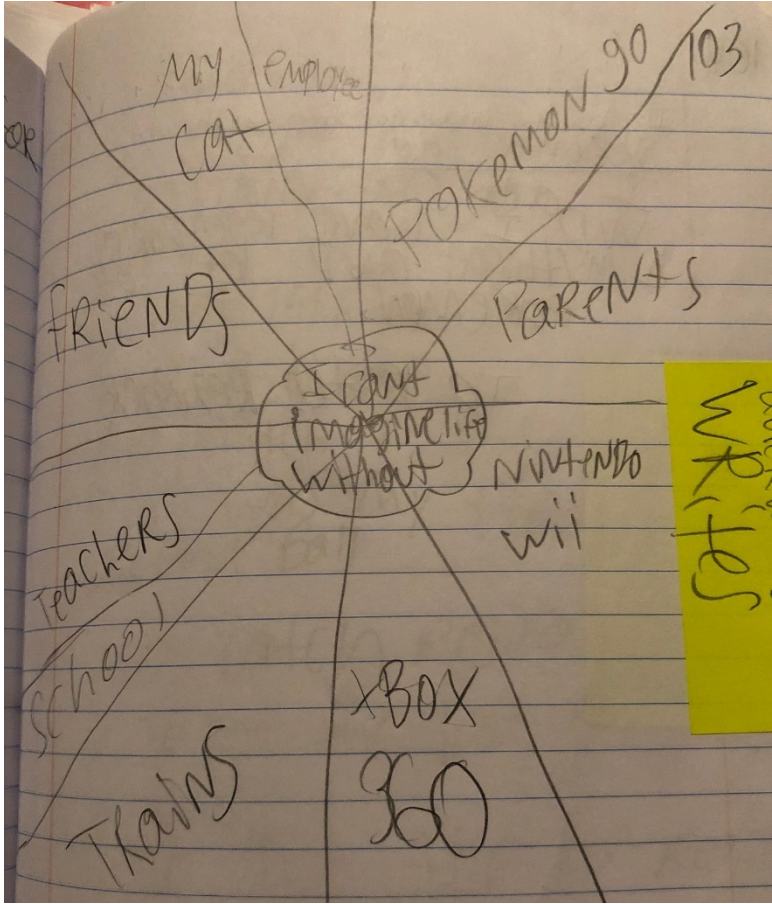 OR
My
cat
employee
Pokemon go
103
PaReNts
fRieNDs
I cant
imagine life
without
NiNteNDo
wii
Teachers
School
TRaiNs
xBOX
360
WRites